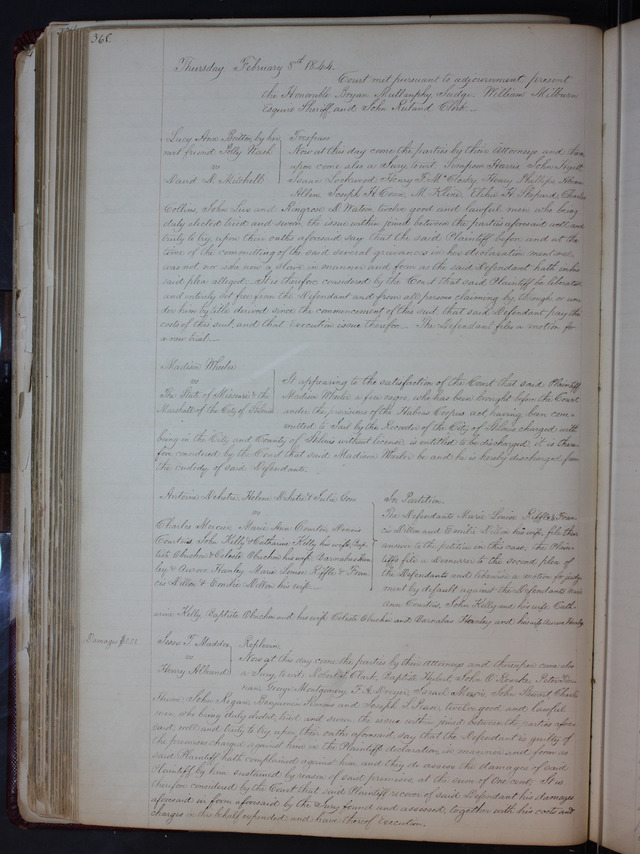 368.
Thursday February 8th 1844.
Court met pursuant to adjournment, present
the Honorable Bryan Mullanphy Judge, William Milburn
Esquire Sheriff and John Ruland Clerk.
Lucy Ann Britton by her
next friend Polly Wash
vs
David D. Mitchell
Trespass
Now at this day come the parties by their Attorneys and there
upon come also a Jury to wit. Simpson Harris John
Isaac Lockwood Henry F. McClosky Henry Phillips
Allen Joseph H. M Kline, Elisha H. Shepard, Charles
Collins, John and Ringrose D. Watson, twelve good and lawful men, who being
duly elected tried and sworn the issue within joined between the parties aforesaid well and
truly to try, upon their oaths aforesaid, say that the said Plaintiff before and at the
time of the committing of the said several grievances in her declaration mentioned,
was not, nor is she now a slave in manner and form as the said Defendant hath in his
said plea alleged; It is therefore considered by the Court that said Plaintiff be liberated
and entirely set free from the Defendant and from all persons claiming by, through or un-
der him by title derived since the commencement of this suit, that said Defendant pay the
costs of this suit, and that Execution issue therefor. The Defendant files a motion for
a new trial.
Madison Wheeler
vs
The State of Missouri & the
Marshall of the City of St Louis
It appearing to the satisfaction of the Court that said Plaintiff
Madison Wheeler a free negro, who has been brought before the Court
under the provisions of the Habeas Corpus act, having been com-
mitted to Jail by the Recorder of the City of St Louis charged with
being in the City and County of St Louis without license is entitled to be discharged, it is there-
fore considered by the Court that said Madison Wheeler be and he is hereby discharged from
the custody of said Defendants.
Antoine Helene & Julie
vs
Charles Mercier Marie Ann Courtois, Francis
Courtois John Kelly & Catharine Kelly his wife, Bap-
tiste Obuchon & Celeste Obuchon his wife Barnabas Han-
ley & Aurore Hanley Marie Louise Riffle & Fran-
cis Dillon & Emilie Dillon his wife
In Partition.
The Defendants Marie Louise Riffle & Fran-
cis Dillon and Emilie Dillon his wife, file their
answer to the petition in this case, the Plain-
tiffs file a demurrer to the second plea of
the Defendants and likewise a motion for judg-
ment by default against the Defendants Marie
Ann Courtois, John Kelly and his wife Cath-
arine Kelly Baptiste Obuchon and his wife Celeste Obuchon and Barnabas Hanley and his wife Aurore Hanley
Damages
Jesse T. Maddox
vs
Henry
Replevin.
Now at this day come the parties by their attorneys and thereupon come also
a Jury, to wit: Robert S. Clark, Baptiste Hybert, John O. Peter
George Montgomery, F. A. Israel Morris, John Stewart Charles
John Rogan, Benjamin and Joseph S. Pease, twelve good and lawful
men, who being duly elected, tried and sworn the issue within joined between the parties afore-
said, well and truly to try, upon their oaths aforesaid, say that the Defendant is guilty of
the premises charged against him in the Plaintiff's declaration, in manner and form as
said Plaintiff hath complained against him, and they do assess the damages of said
Plaintiff by him sustained by reason of said premises, at the sum of one cent; It is
therefore considered by the Court that said Plaintiff recover of said Defendant his damages
aforesaid in form aforesaid by the Jury found and assessed, together with his costs and
charges in this behalf expended and have thereof Execution.